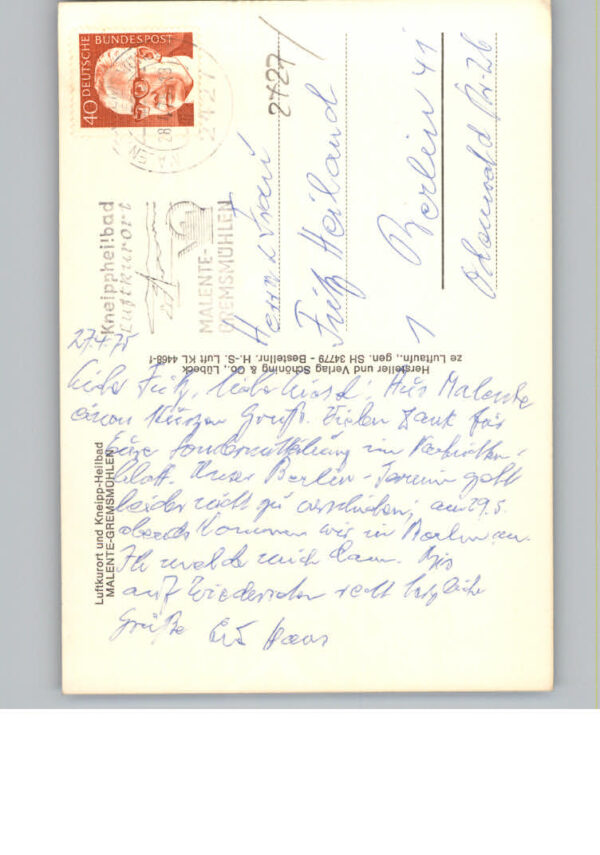 40 DEUTSCHE BUNDESPOST
2427
Kneippheilbad
Luftkurort
MALENTE-
GREMSMÜHLEN
2427
Herrn u. Frau
Fritz Heiland
1 Berlin 41
Odenwaldstr. 26
Hersteller und Verlag Schöning & Co., Lübeck
ze Luftaufn., gen. SH 34779 - Bestellnr. H.-S. Luft KL 4468-1
Luftkurort und Kneipp-Heilbad
MALENTE-GREMSMÜHLEN
27.4.75
Lieber Fritz, liebe Aus Malente
einen kurzen Gruß. Vielen Dank für
Eure im
blatt. Unser Berlin-Termin geht
leider nicht zu verschieben; am 29.5.
abends kommen wir in Berlin an.
Ich melde mich dann. Bis
auf Wiedersehen recht herzliche
Grüße Haas